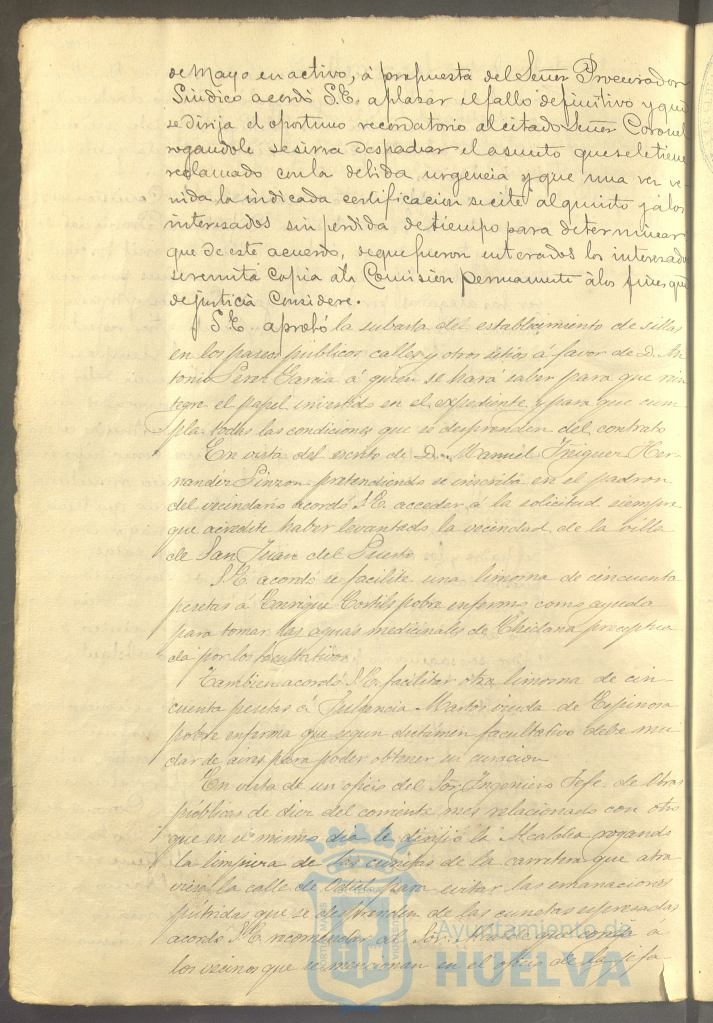 de Mayo en activo, á propuesta del Señor Procurador
Sindico acordó S.E. aplazar el fallo definitivo y que
se dirija el oportuno recordatorio al citado Señor Coronel
rogandole se sirva despachar el asunto que se le tiene
reclamado con la debida urgencia y que una vez ve-
nida la indicada certificacion se cite al quinto y á los
interesados sin perdida de tiempo para determinar
que de este acuerdo, de que fueron enterados los interesados
se remita copia á la Comisión permanente á los fines que
de justicia considere.
S.E. aprobó la subasta del establecimiento de sillas
en los paseos públicos calles y otros sitios á favor de D. An-
tonio Perez Garcia á quien se hará saber para que rein-
tegre el papel invertido en el expediente y para que cum-
pla todas las condiciones que se desprenden del contrato
En vista del escrito de D. Manuel Iñiguez Her-
nandez Pinzon pretendiendo se inscriba en el padron
del vecindario acordó S.E. acceder á la solicitud siempre
que acredite haber levantado la vecindad de la villa
de San Juan del Puerto
S.E. acordó se facilite una limosna de cincuenta
pesetas á Enrique Cortils pobre enfermo como ayuda
para tomar las aguas medicinales de Chiclana preceptua-
da por los facultativos.
Tambien acordó S.E. facilitar otra limosna de cin-
cuenta pesetas á Martos viuda de Espinosa
pobre enferma que segun dictámen facultativo debe mu-
dar de aires para poder obtener su curacion
En vista de un oficio del Sõr. Ingeniero Jefe de Obras
públicas de diez del corriente mes relacionado con otro
que en el mismo dia le dirijió la Alcaldia rogando
la limpieza de las cunetas de la carretera que atra-
viesa la calle de Odiel para evitar las emanaciones
pútridas que se desprenden de las cunetas espresadas
acordó S.E. recomendar al Sõr. Alcalde que á
los vecinos que se mencionan en el oficio de la jefa-
Ayuntamiento de
HUELVA